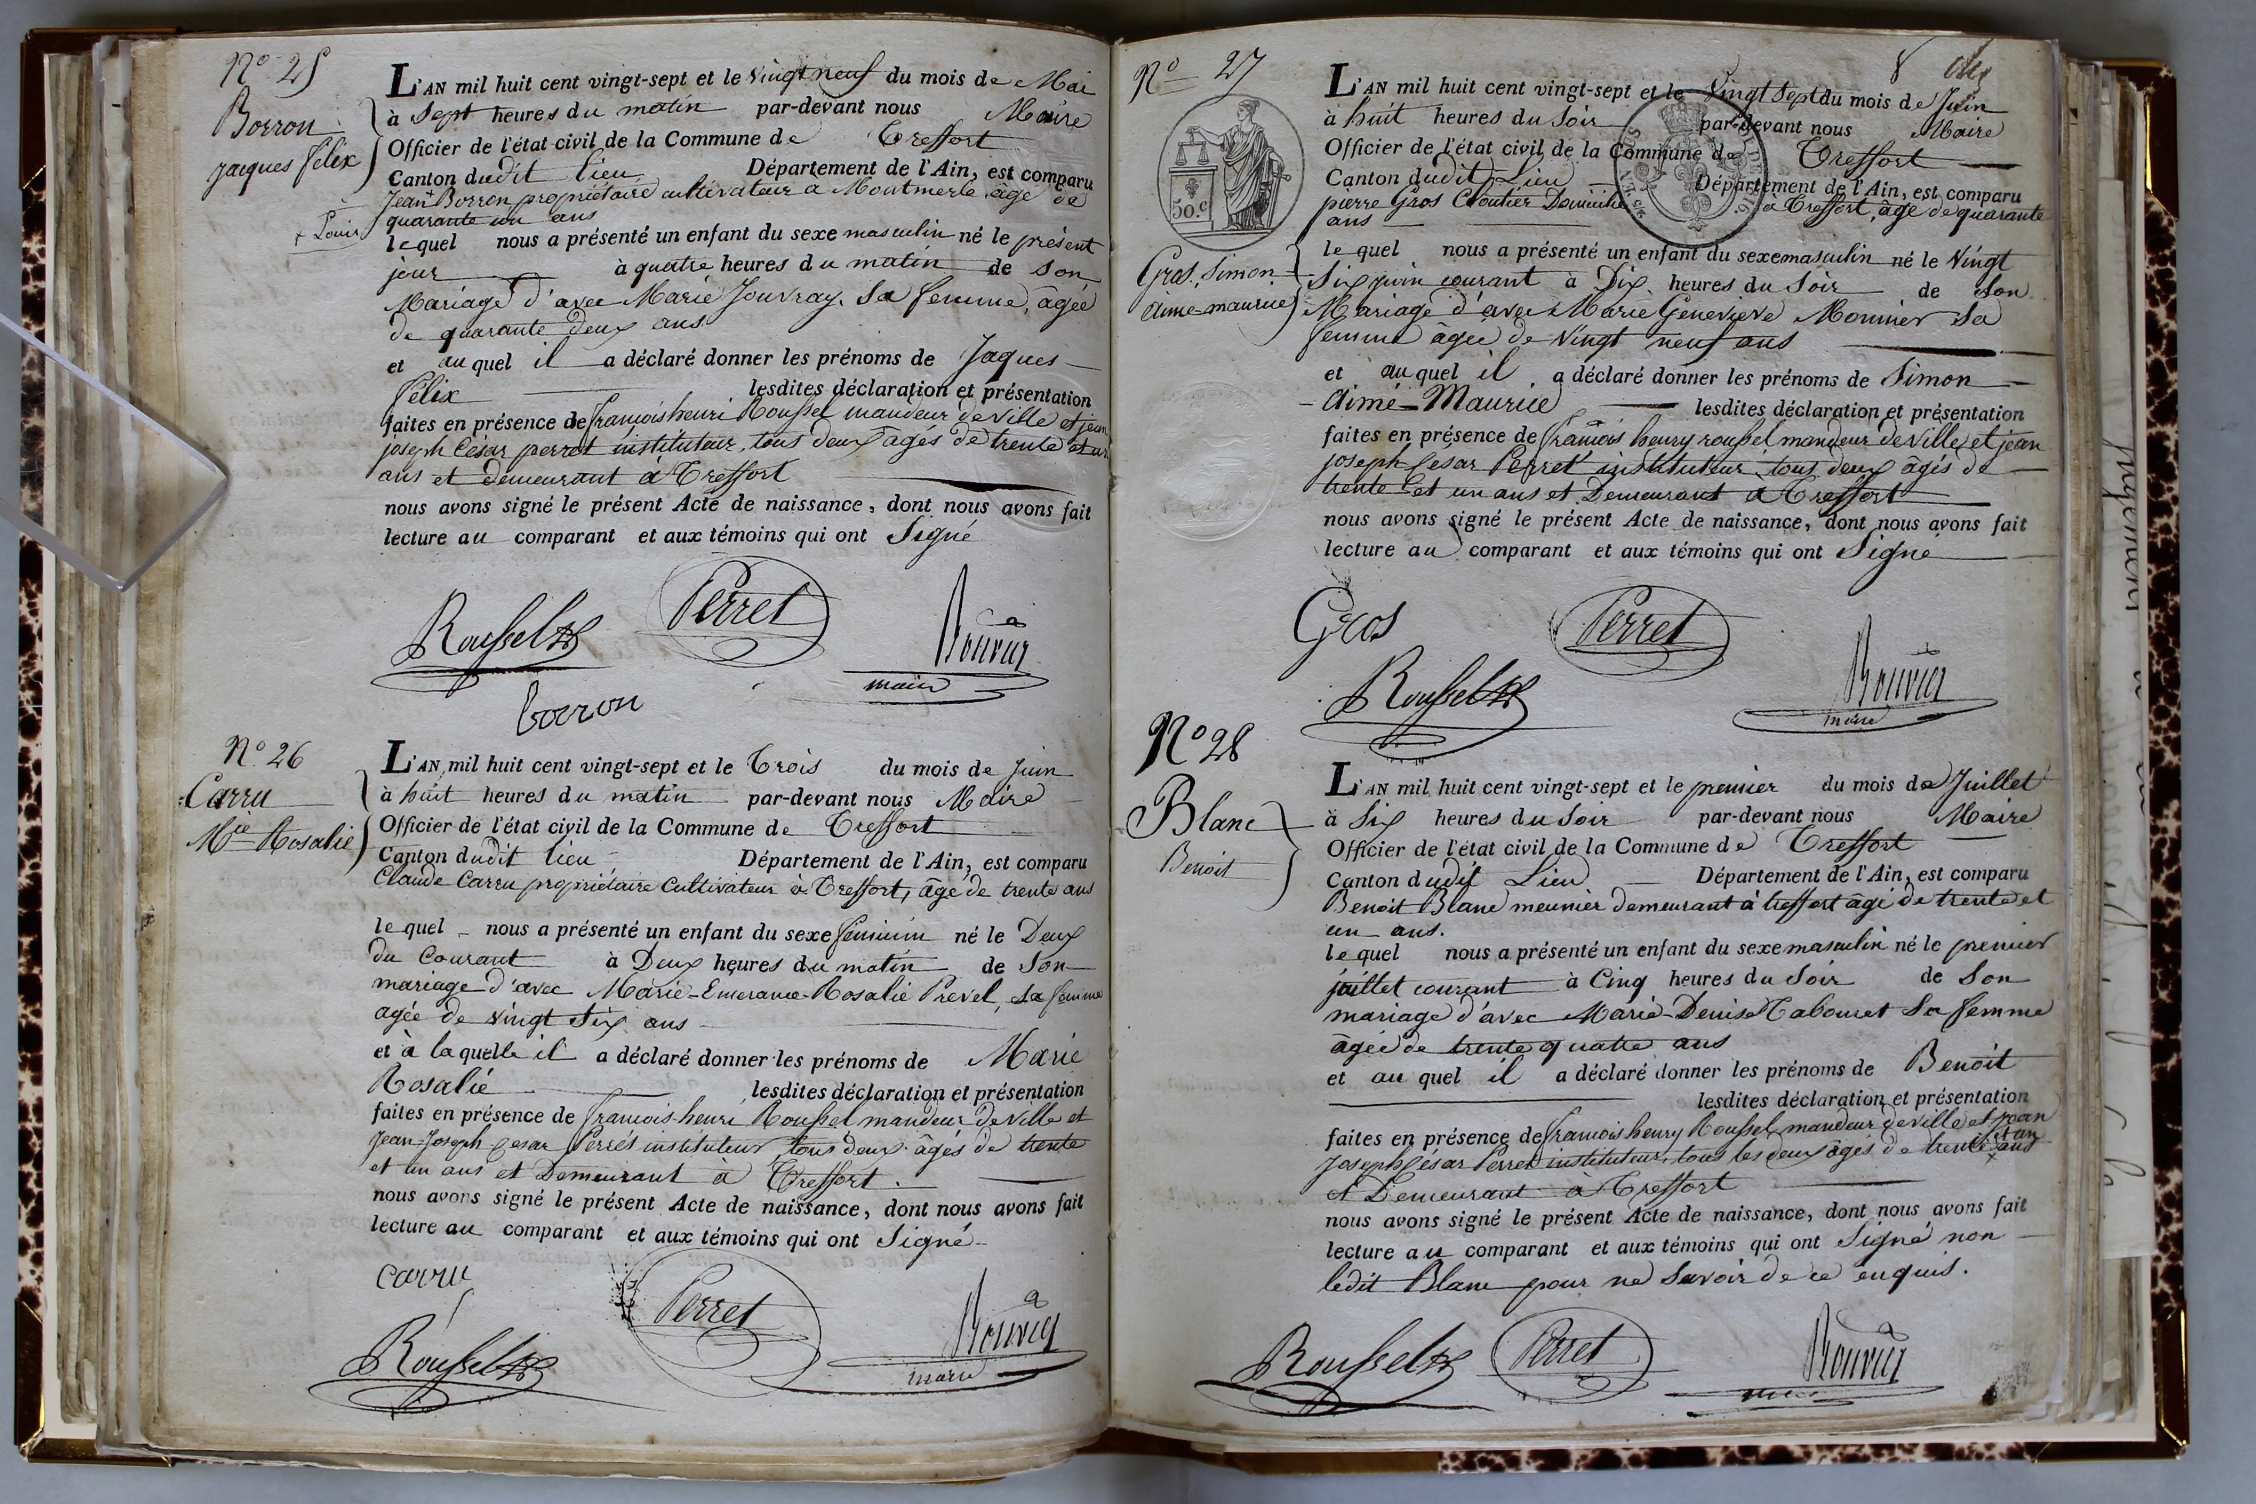 No 25
Borron
jacques félix
+ Louis
L'AN mil huit cent vingt-sept et le vingt neuf du mois de Mai
à Sept heures du matin par-devant nous Maire
Officier de l'état civil de la Commune de Treffort
Canton dudit lieu Département de l'Ain, est comparu
Jean + Borron propriétaire cultivateur a Montmerle, âgé de
quarante un ans
lequel nous a présenté un enfant du sexe masculin né le présent
jour à quatre heures du matin de son
Mariage d'avec Marie Jouvray sa femme, âgée
de quarante deux ans
et auquel il a déclaré donner les prénoms de Jaques
Félix lesdites déclaration et présentation
faites en présence de francois henri Roussel mandeur de ville et jean
joseph César perret instituteur, tous deux âgés de trente et un
ans et demeurant a Treffort
nous avons signé le présent Acte de naissance, dont nous avons fait
lecture au comparant et aux témoins qui ont Signé
Roussel Perret Bouvier
maire
borron
No 26
Carru
Mie Rosalie
L'AN mil huit cent vingt-sept et le Trois du mois de Juin
à huit heures du matin par-devant nous Maire
Officier de l'état civil de la Commune de Treffort
Canton dudit lieu Département de l'Ain, est comparu
Claude Carru propriétaire Cultivateur à Treffort, âgé de trente ans
lequel nous a présenté un enfant du sexe féminin né le Deux
du Courant à Deux heures du matin de Son
mariage d'avec Marie-Emerance-Rosalie Prevel, sa femme
agée de vingt Six ans
et à laquelle il a déclaré donner les prénoms de Marie
Rosalie lesdites déclaration et présentation
faites en présence de francois-henri Roussel mandeur de ville et
Jean-Joseph Cesar Perret instituteur, tous deux âgés de trente
et un ans et Demeurant à Treffort.
nous avons signé le présent Acte de naissance, dont nous avons fait
lecture au comparant et aux témoins qui ont Signé
carru
Perret
Roussel Bouvier
maire
No 27
8
50.c
Gros, Simon
aimé-maurice
L'AN mil huit cent vingt-sept et le Vingt Sept du mois de Juin
à huit heures du Soir par-devant nous Maire
Officier de l'état civil de la Commune de Treffort
Canton dudit Lieu Département de l'Ain, est comparu
pierre Gros Cloutier Domicilié à Treffort, âgé de quarante
ans
lequel nous a présenté un enfant du sexe masculin né le Vingt
Six juin courant à Dix heures du Soir de son
Mariage d'avec Marie Genevieve Monnier Sa
femme âgée de Vingt neuf ans
et auquel il a déclaré donner les prénoms de Simon
Aimé-Maurice lesdites déclaration et présentation
faites en présence de francois henry roussel mandeur de Ville et jean
joseph Cesar Perret instituteur, tous deux âgés de
trente et un ans et Demeurant à Treffort
nous avons signé le présent Acte de naissance, dont nous avons fait
lecture au comparant et aux témoins qui ont Signé
Gros Perret
Roussel Bouvier
maire
No 28
Blanc
Benoit
L'AN mil huit cent vingt-sept et le premier du mois de Juillet
à Six heures du Soir par-devant nous Maire
Officier de l'état civil de la Commune de Treffort
Canton dudit Lieu Département de l'Ain, est comparu
Benoit Blanc meunier demeurant à treffort âgé de trente et
un ans.
lequel nous a présenté un enfant du sexe masculin né le premier
juillet courant à Cinq heures du Soir de Son
mariage d'avec Marie-Denise Tabouret Sa femme
âgée de trente quatre ans
et auquel il a déclaré donner les prénoms de Benoit
lesdites déclaration et présentation
faites en présence de francois henry Roussel mandeur de ville et jean
Joseph César Perret instituteur, tous les deux âgés de trente et un ans
et Demeurant à Treffort
nous avons signé le présent Acte de naissance, dont nous avons fait
lecture au comparant et aux témoins qui ont Signé non
ledit Blanc pour ne Savoir de ce enquis.
Roussel Perret Bouvier
maire